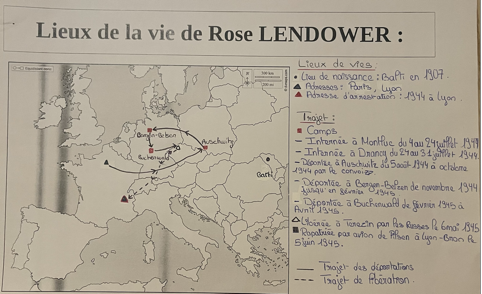 Lieux de la vie de Rose LENDOWER :
Lieux de vies:
Lieu de naissance : Balti en 1907.
Adresses: Paris, Lyon
Adresse d'arrestation : 1944 à Lyon.
Trajet:
Camps
Internée à Montluc du 4 au 24 juillet 1944
Internée à Drancy du 24 au 31 juillet 1944
Déportée à Auschwitz du 5 août 1944 à octobre
1944 par le convoi
Déportée à Bergen-Belsen de novembre 1944
jusqu'en février 1945
Déportée à Buchenwald de février 1945 à
Avril 1945.
Libérée à Terezin par les Russes le 6 mai 1945
Rapatriée par avion de Pilsen à Lyon-Bron le
5 juin 1945.
Trajet des déportations
Trajet de libération.
Bergen-Belsen
Buchenwald
Auschwitz
Balti